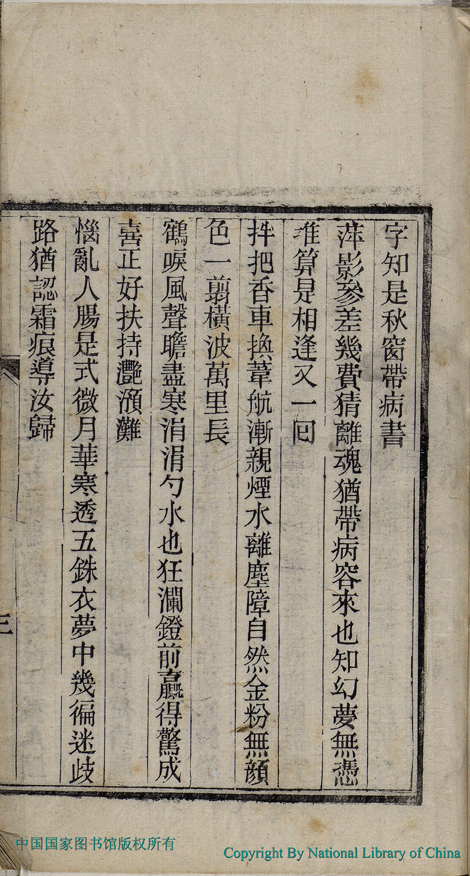 字知是秋窗帶病書
萍影參差幾費猜離魂猶帶病容來也知幻夢無憑
準算是相逢又一回
拌把香車換葦航漸親煙水離塵障自然金粉無顏
色一剪橫波萬里長
鶴唳風聲膽盡寒涓涓勺水也狂瀾鐙前贏得驚成
喜正好扶持灔澦難
惱亂人腸是式微月華寒透五銖衣夢中幾徧迷歧
路猶認霜痕導汝歸
三
中国国家图书馆版权所有
Copyright By National Library of China